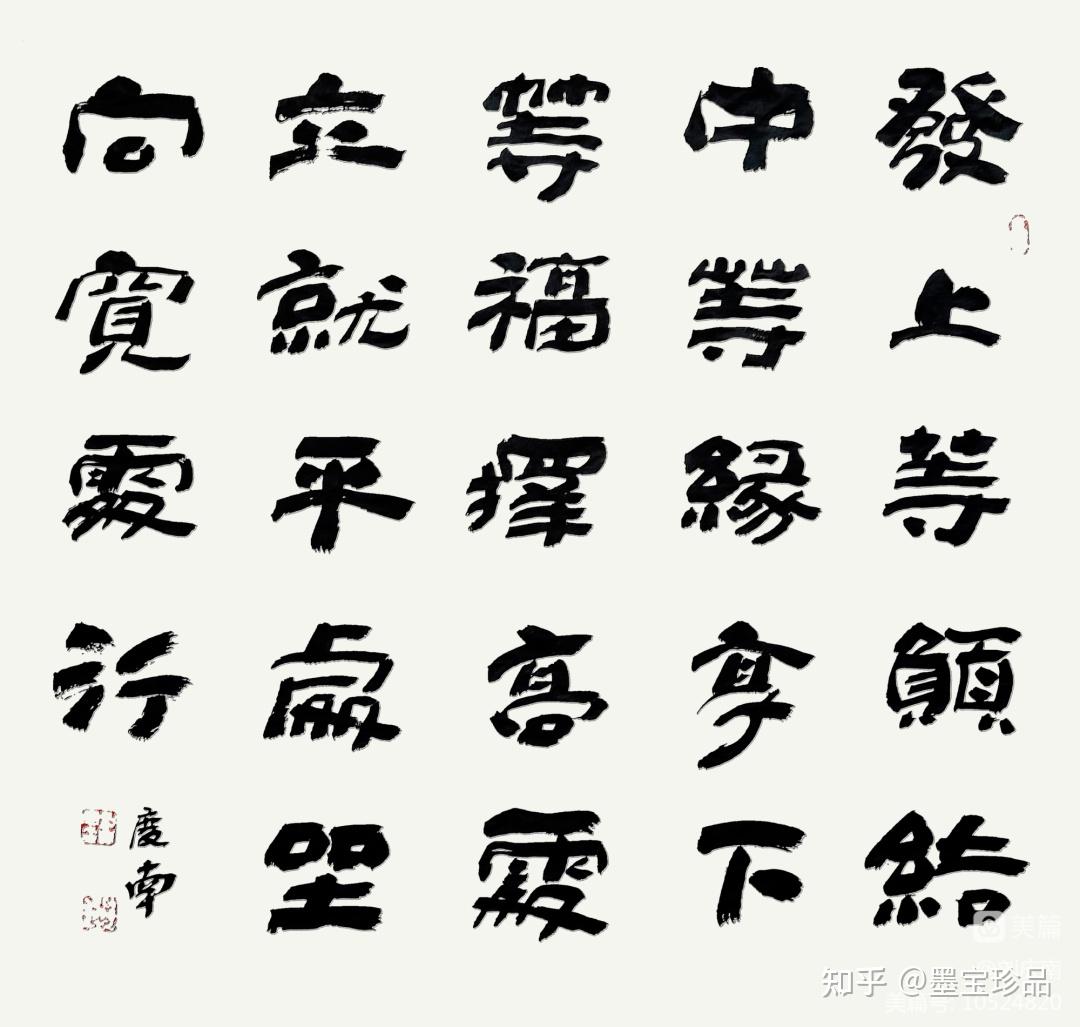 發上等願結
中等緣享下
等福擇高處
立就平處坐
向寬處行
慶南
美篇
知乎 @墨宝珍品
美篇号: 10524820